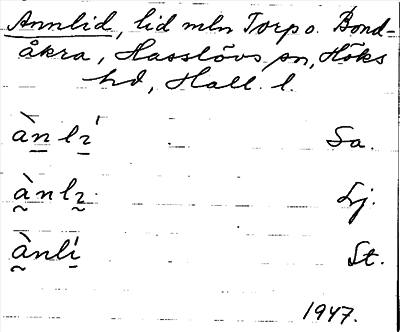 Annlid, lid mln Torp o. Bond-
åkra, Hasslövs sn, Höks
hd, Hall. l.
ànlı́ Sa.
ànlı Lj.
ànlí St.
1947.